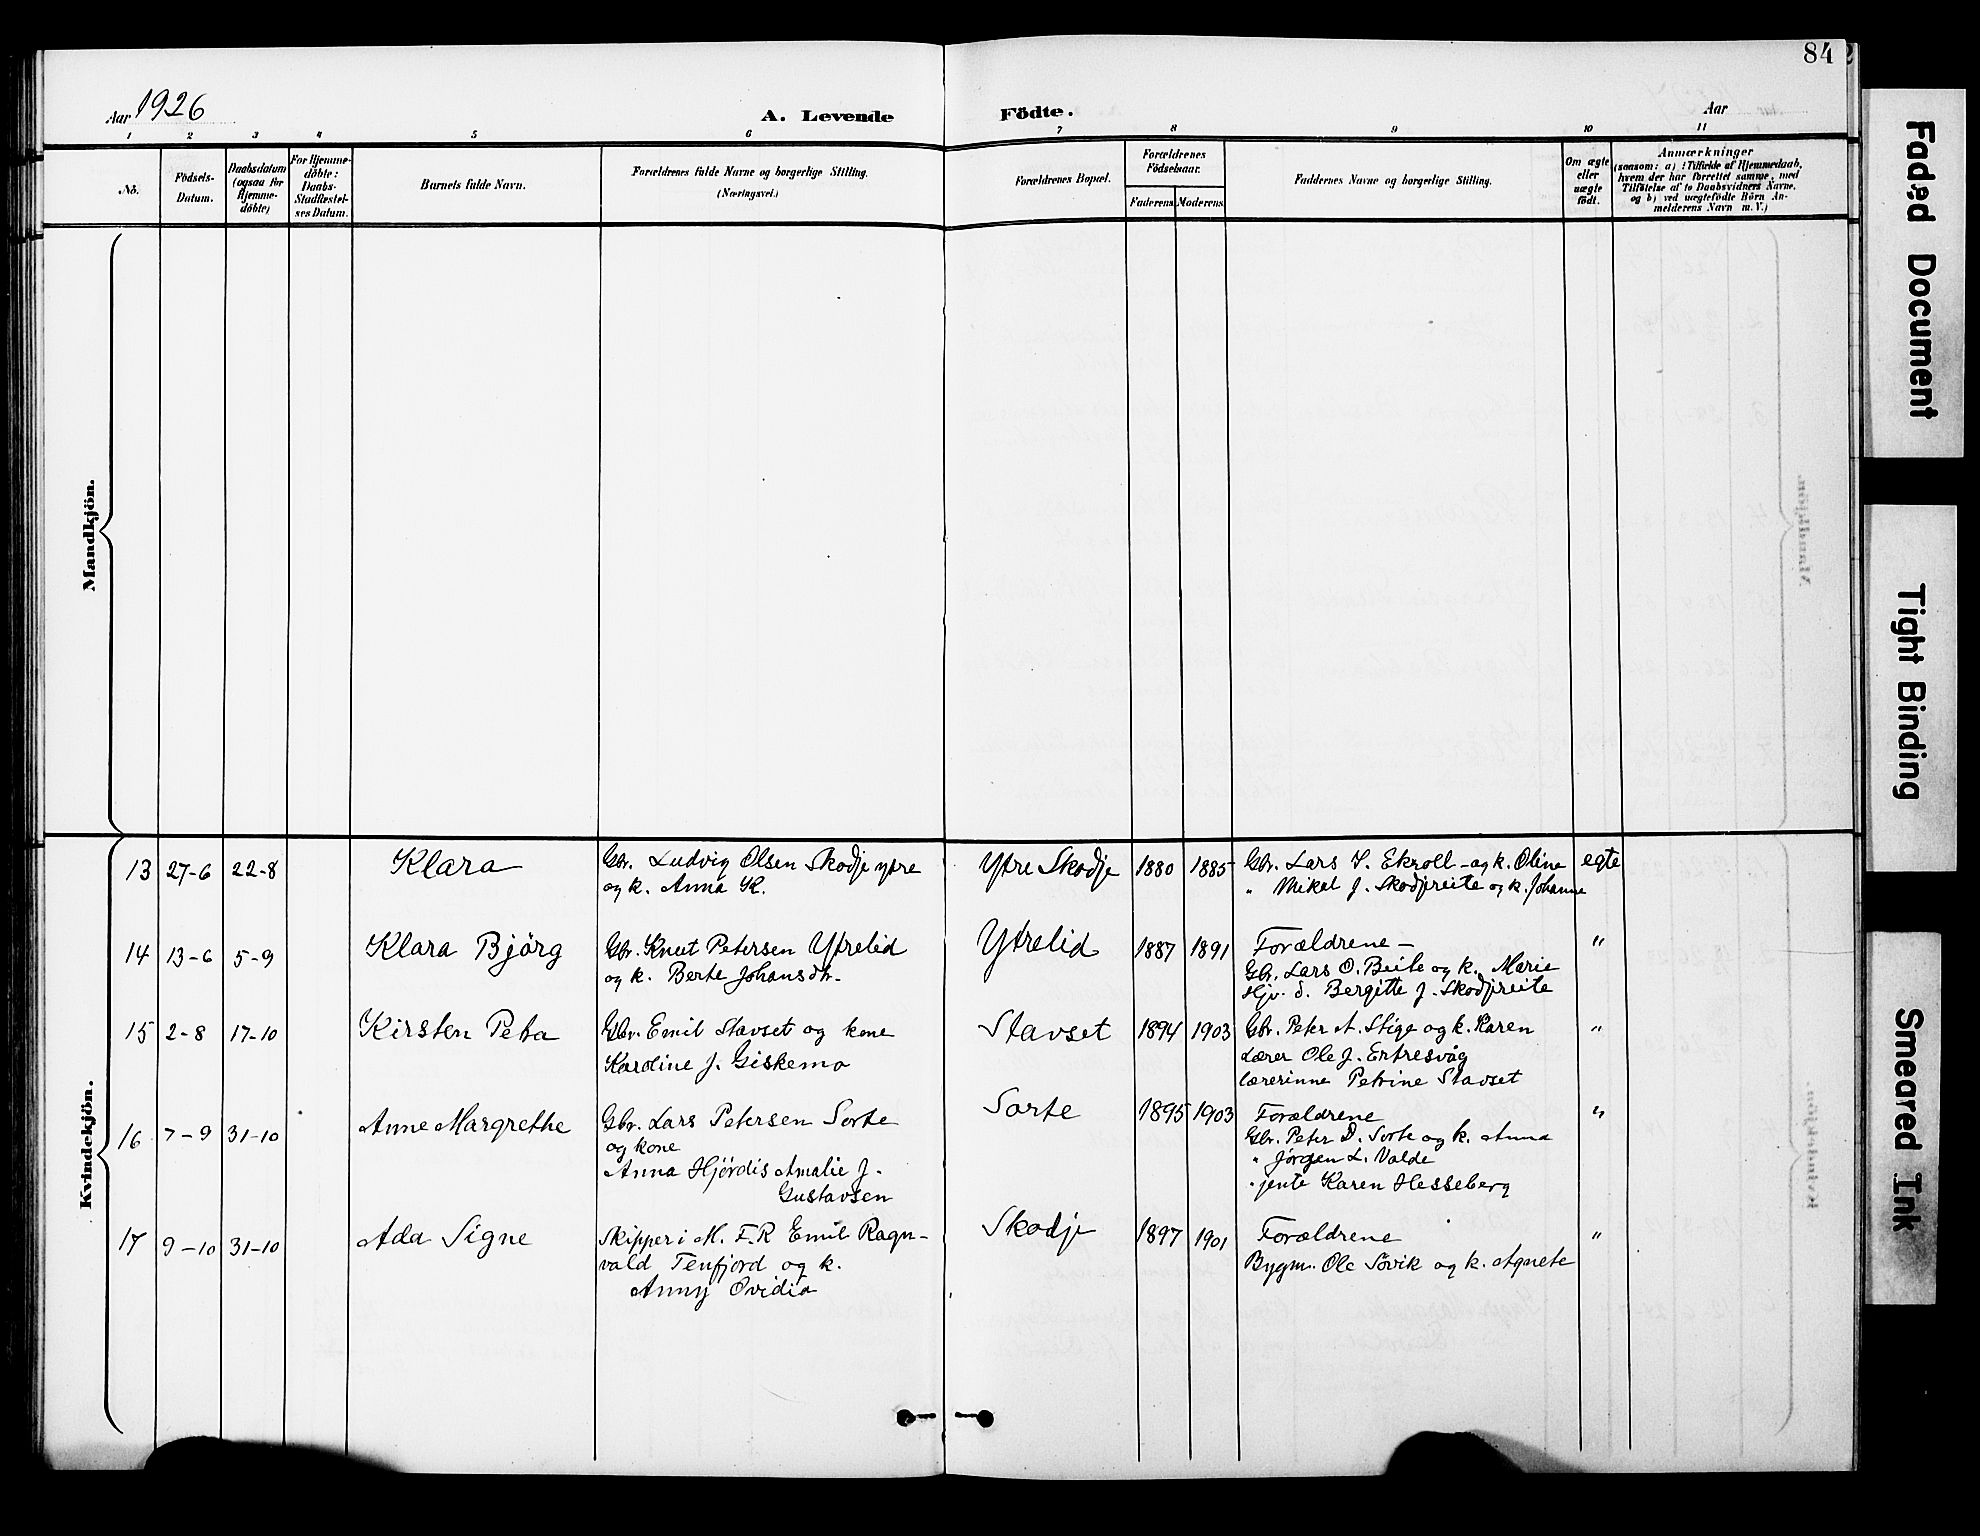 84
Aar 1926
A. Levende Födte.
Aar
1 2 3 4 5 6 7 8 9 10 11
No.
Födsels-
Datum.
Daabsdatum
(ogsaa for
Hjemme-
döbte)
For Hjemme-
döbte:
Daabs-
Stadfæstel-
ses Datum.
Barnets fulde Navn.
Forældrenes fulde Navne og borgerlige Stilling.
(Næringsvei.)
Forældrenes Bopæl.
Forældrenes
Födselsaar.
Faderens Moderens
Faddernes Navne og borgerlige Stilling.
Om ægte
eller
uægte
födt.
Anmærkninger
(saasom: a) i Tilfælde af Hjemmedaab,
hvem der har forrettet samme, med
Tilföielse af to Daabsvidners Navne,
og b) ved uægtefödte Börn An-
melderens Navn m. V.)
Mandkjön.
Kvindekjön.
13 27-6 22-8 Klara
Gbr. Ludvig Olsen Skodje ytre
og k. Anna K.
Ytre Skodje 1880 1885
Gbr. Lars I. Ekroll - og k. Oline
" Mikal J. Skodjereite og k. Johanne
egte
14 13-6 5-9 Klara Bjørg
Gbr. Knut Petersen Ytrelid
og k. Berte Johansdtr.
Ytrelid 1887 1891
Forældrene -
Gbr. Lars O. Beite og k. Marie
Hjv. d. Bergitte J. Skodjereite
"
15 2-8 17-10 Kirsten Petra
Gbr. Emil Stavset og kone
Karoline J. Giskemo
Stavset 1894 1903
Gbr. Peter A. Stige og k. Karen
Lærer Ole J. Ertresvåg
lærerinne Petrine Stavset
"
16 7-9 31-10 Anne Margrethe
Gbr. Lars Petersen Sorte
og kone
Anna Hjördis Amalie J.
Gustavsen
Sorte 1895 1903
Forældrene
Gbr. Peter D. Sorte og k. Anna
" Jörgen L. Valde
" jente Karen Hesseberg
"
17 9-10 31-10 Ada Signe
Skipper i M. F. R Emil Ragn-
vald Tenfjord og k.
Anny Ovidia
Skodje 1897 1901
Forældrene
Bygm. Ole Sövik og k. Agnete
"
Faded Document
Tight Binding
Smeared Ink